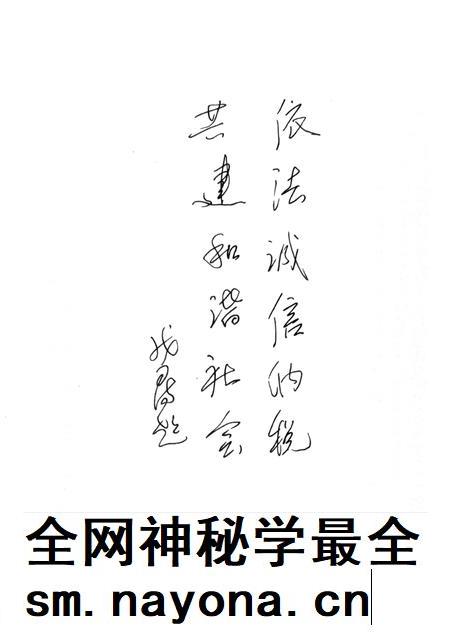 依法诚信纳税
共建和谐社会
成龙题
全网神秘学最全
sm.nayona.cn